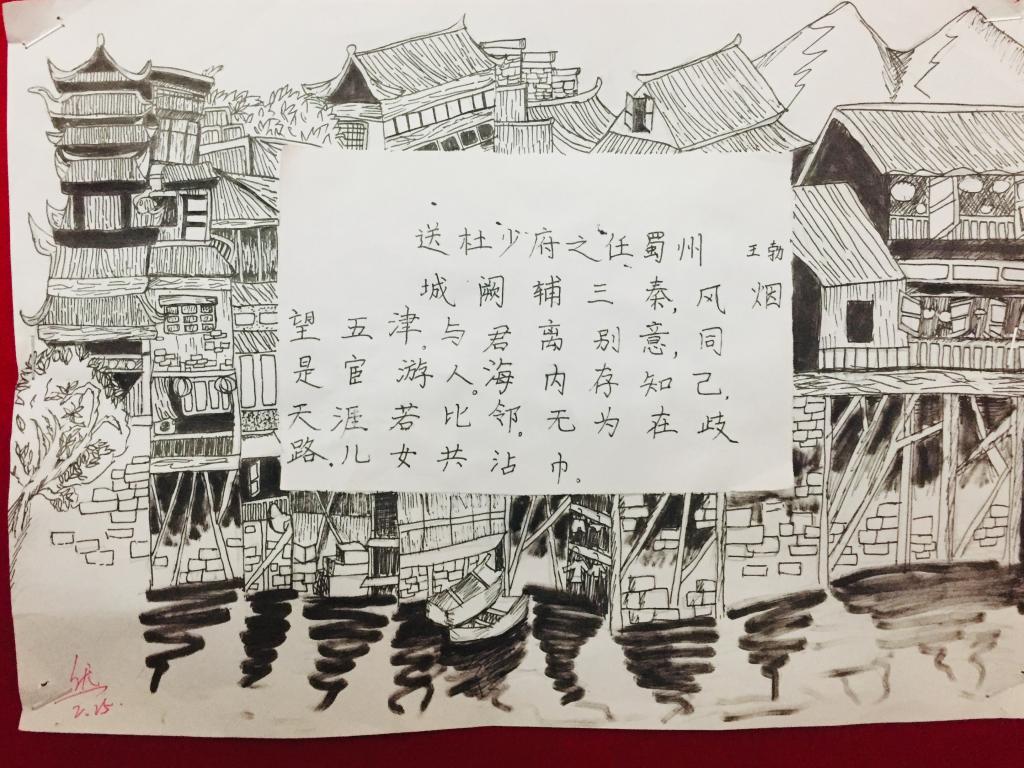 送杜少府之任蜀州 王勃
城阙辅三秦,风烟
望五津。与君离别意,同
是宦游人。海内存知己,
天涯若比邻。无为在歧
路,儿女共沾巾。
2.25.